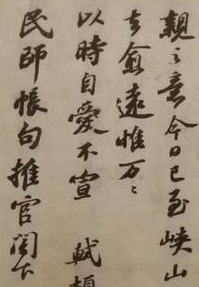 親之意今日已至峽山
去愈遠惟万〻
以時自愛不宣 軾頓
民師帳句推官閣下